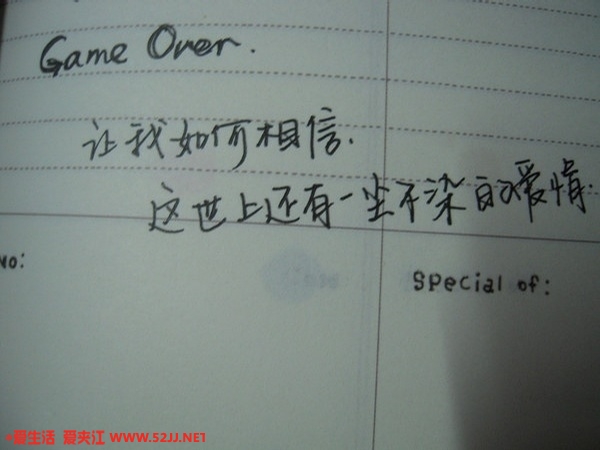 Game Over.
让我如何相信.
这世上还有一尘不染的爱情.
No:
Special of:
爱生活 爱夹江 WWW.52JJ.NET